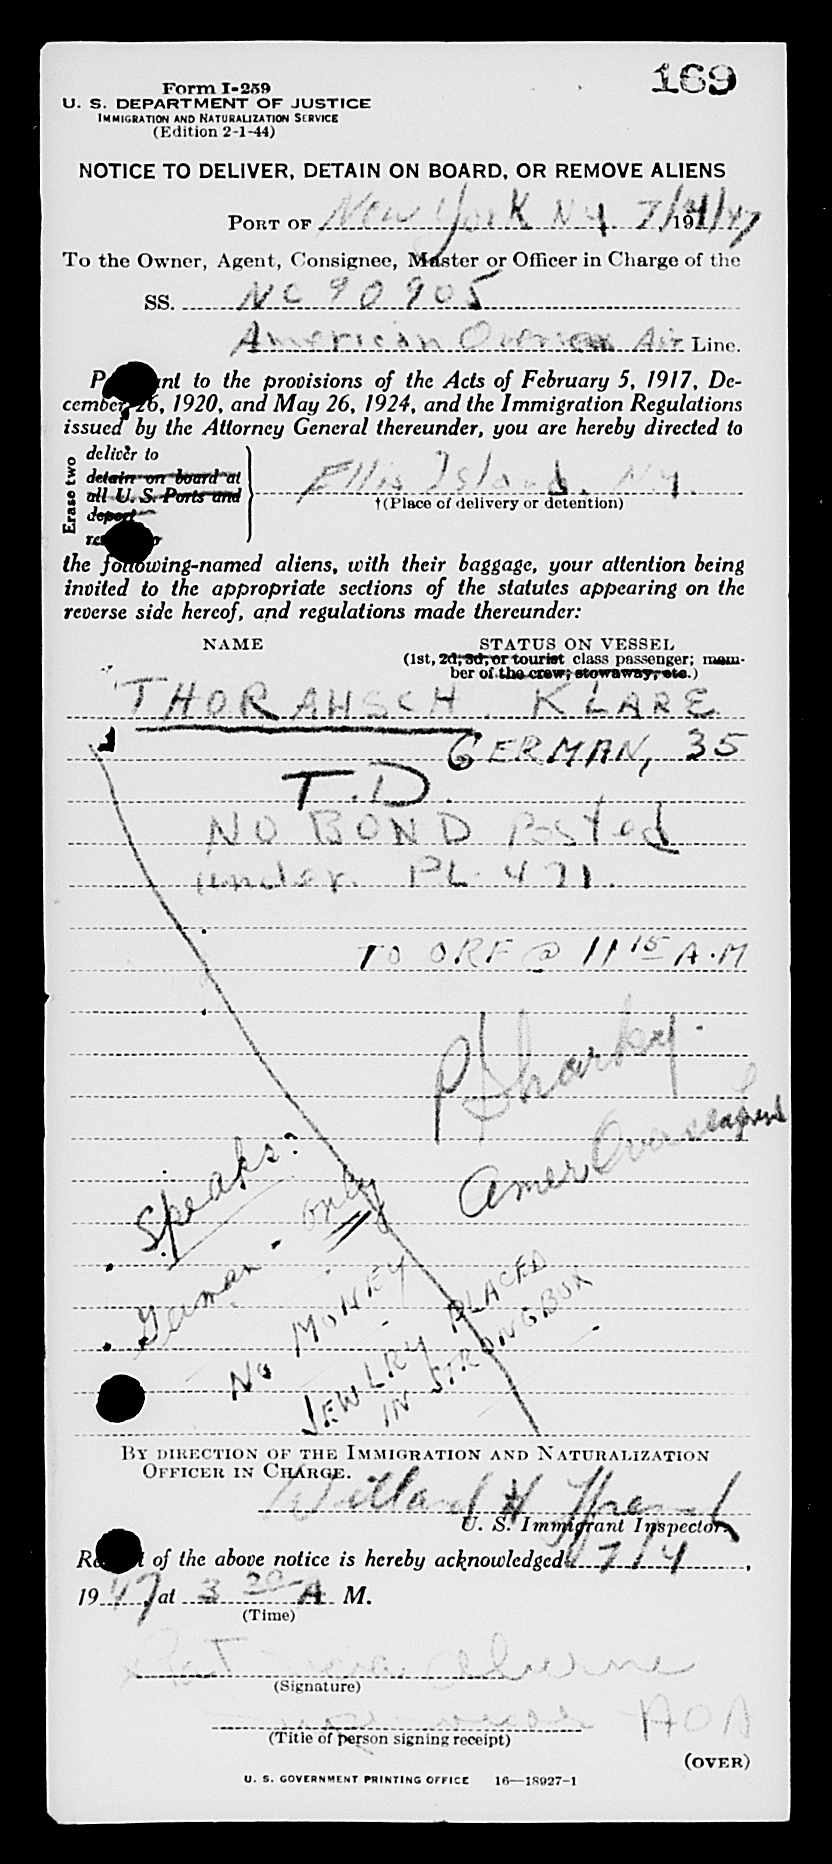 169
Form I-259
U. S. DEPARTMENT OF JUSTICE
IMMIGRATION AND NATURALIZATION SERVICE
(Edition 2-1-44)
NOTICE TO DELIVER, DETAIN ON BOARD, OR REMOVE ALIENS
PORT OF New York NY 7/4/47, 19
To the Owner, Agent, Consignee, Master or Officer in Charge of the
SS. NC 90905
American Overseas Air Line.
to the provisions of the Acts of February 5, 1917, De-
cember 26, 1920, and May 26, 1924, and the Immigration Regulations
issued by the Attorney General thereunder, you are hereby directed to
Erase two
deliver to
detain on board at
all U. S. Ports and
deport
Ellis Island, NY.
†(Place of delivery or detention)
the following-named aliens, with their baggage, your attention being
invited to the appropriate sections of the statutes appearing on the
reverse side hereof, and regulations made thereunder:
NAME STATUS ON VESSEL
(1st, 2d, 3d, or tourist class passenger; mem-
ber of the crew; stowaway, etc.)
THORAHSCH, KLARE
GERMAN, 35
T.D.
NO BOND Posted
under PL 471.
TO ORF @ 11 15 A.M
P Sharky
Amer Overseas
Speaks:
German - only
NO MONEY
JEWLRY PLACED
IN STRONGBOX
BY DIRECTION OF THE IMMIGRATION AND NATURALIZATION
OFFICER IN CHARGE.
Willard H
U. S. Immigrant Inspector.
of the above notice is hereby acknowledged 7/4,
1947, at 3 20 A M.
(Time)
(Signature)
AOA
(Title of person signing receipt)
(OVER)
U. S. GOVERNMENT PRINTING OFFICE 16—18927-1